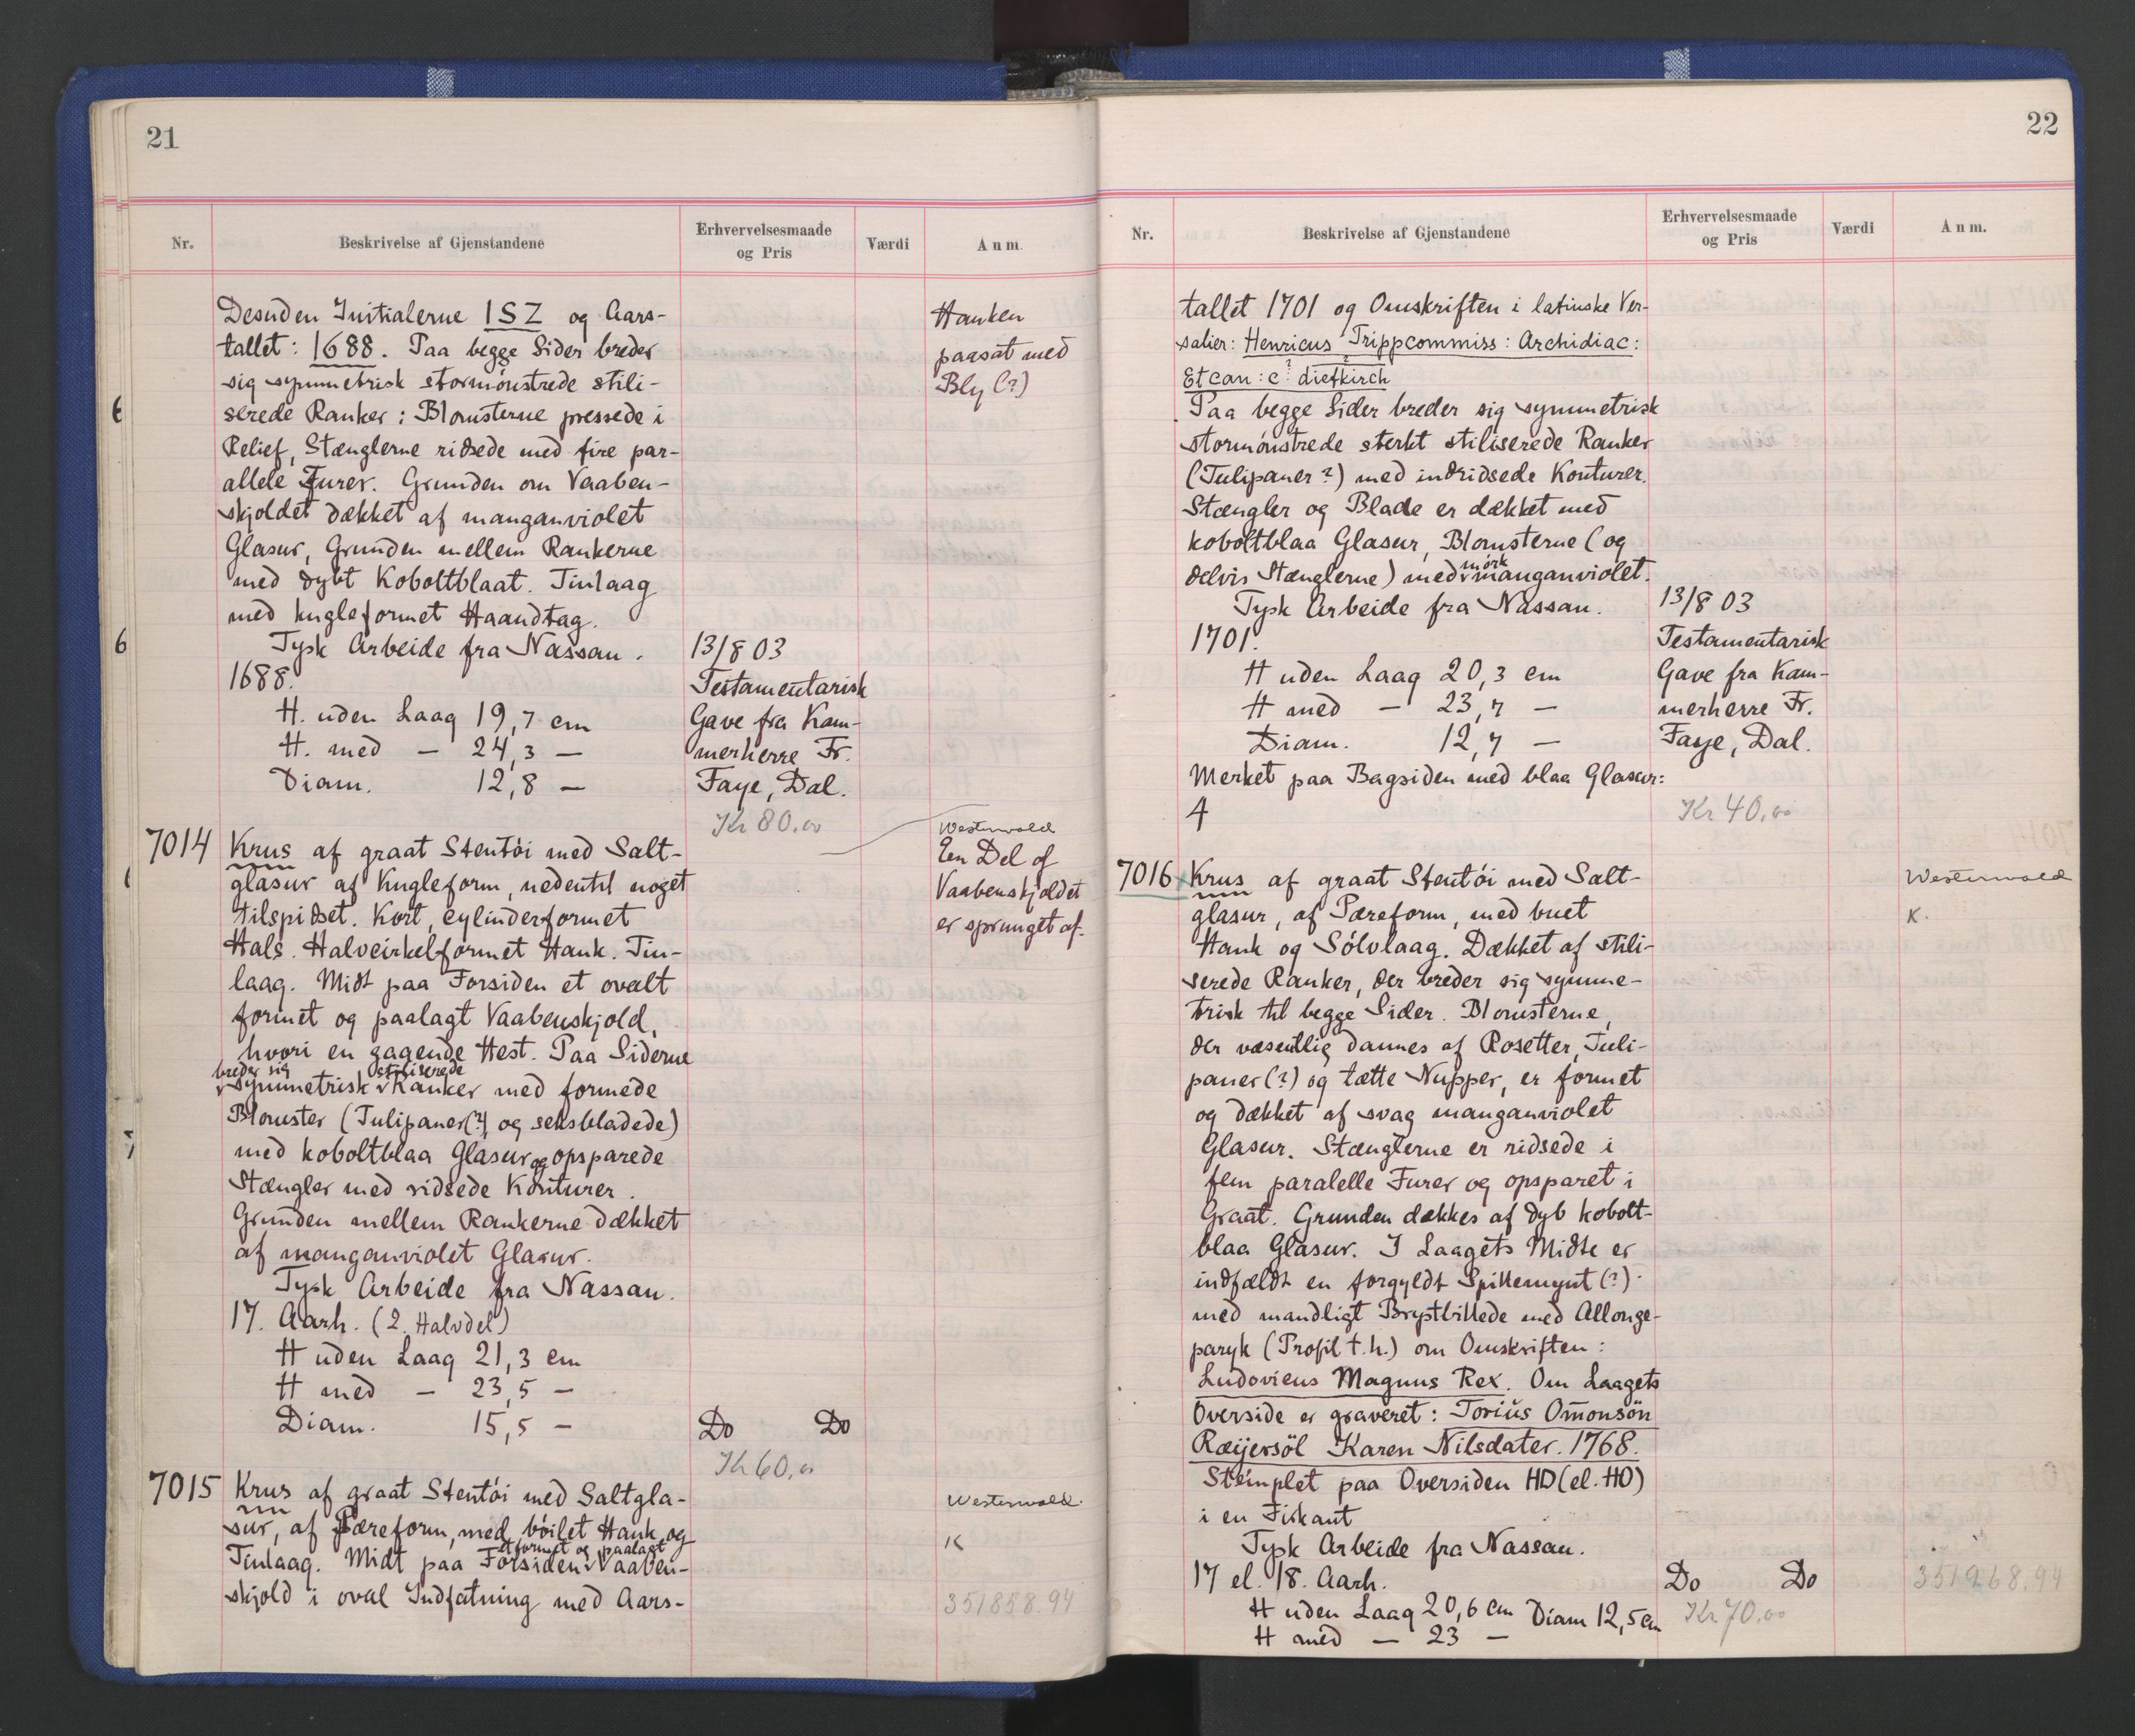 21
Nr.
Beskrivelse af Gjenstandene
Erhvervelsesmaade
og Pris
Værdi
Anm.
Desuden Initialerne ISZ og Aars-
tallet: 1688. Paa begge Sider breder
sig symmetrisk stormønstrede stili-
serede Ranker: Blomsterne pressede i
Relief, Stænglerne ridsede med fire par-
allele Furer. Grunden om Vaaben-
skjoldet dækket af manganviolet
Glasur, Grunden mellem Rankerne
med dybt Koboltblaat. Tinlaag
med kugleformet Haandtag.
Tysk Arbeide fra Nassau.
1688.
H. uden Laag 19,7 cm
H. med — 24,3 —
Diam. 12,8 —
13/8 03
Testamentarisk
Gave fra Kam-
merherre Fr.
Faye, Dal.
Kr 80.00
Hanken
paasat med
Bly (?)
7014
Krus af graat Stentøi med Salt-
glasur af Kugleform, nedentil noget
tilspidset. Kort, cylinderformet
Hals. Halvcirkelformet Hank. Tin-
laag. Midt paa Forsiden et ovalt
formet og paalagt Vaabenskjold,
hvori en gagende Hest. Paa Siderne
breder sig stiliserede
symmetrisk Ranker med formede
Blomster (Tulipaner(?) og seksbladede)
med koboltblaa Glasur og opsparede
Stængler med ridsede Konturer.
Grunden mellem Rankerne dækket
af manganviolet Glasur.
Tysk Arbeide fra Nassau.
17. Aarh. (2. Halvdel)
H uden Laag 21,3 cm
H med — 23,5 —
Diam. 15,5 —
Do Do
Kr 60.00
Westerwald
Een Del af
Vaabenskjoldet
er sprunget af.
7015
Krus af graat Stentøi med Saltgla-
sur, af Pæreform, med bøilet Hank og
et formet og paalagt
Tinlaag. Midt paa Forsiden Vaaben-
skjold i oval Indfatning med Aars-
Westerwald.
K
351858.94
22
Nr.
Beskrivelse af Gjenstandene
Erhvervelsesmaade
og Pris
Værdi
Anm.
tallet 1701 og Omskriften i latinske Ver-
salier: Henricus Trippcommiss: Archidiac:
Et can: c? dietkirch
Paa begge Sider breder sig symmetrisk
stormønstrede sterkt stiliserede Ranker
(Tulipaner?) med indridsede Konturer.
Stængler og Blade er dækket med
koboltblaa Glasur, Blomsterne (og
mørk
delvis Stænglerne) med manganviolet.
Tysk Arbeide fra Nassau.
1701.
H uden Laag 20,3 cm
H med — 23,7 —
Diam. 12,7 —
Merket paa Bagsiden med blaa Glasur:
4
13/8 03
Testamentarisk
Gave fra Kam-
merherre Fr.
Faye, Dal.
Kr 40.00
7016
Krus af graat Stentøi med Salt-
glasur, af Pæreform, med buet
Hank og Sølvlaag. Dækket af stili-
serede Ranker, der breder sig symme-
trisk til begge Sider. Blomsterne,
der væsentlig dannes af Rosetter, Tuli-
paner(?) og tætte Nupper, er formet
og dækket af svag manganviolet
Glasur. Stænglerne er ridsede i
fem paralelle Furer og opsparet i
Graat. Grunden dækkes af dyb kobolt-
blaa Glasur. I Laagets Midte er
indfældt en forgyldt Spillemynt (?)
med mandligt Brystbillede med Allonge-
paryk (Profil t.h.) om Omskriften:
Ludovicus Magnus Rex. Om Laagets
Overside er graveret: Toriüs Omonsön
Ræijersöl Karen Nilsdater. 1768.
Stemplet paa Oversiden HD (el. HO)
i en Firkant
Tysk Arbeide fra Nassau.
17 el. 18. Aarh.
H uden Laag 20,6 cm Diam 12,5 cm
H med — 23 —
Do Do
Kr 70.00
Westerwald
K.
351268.94